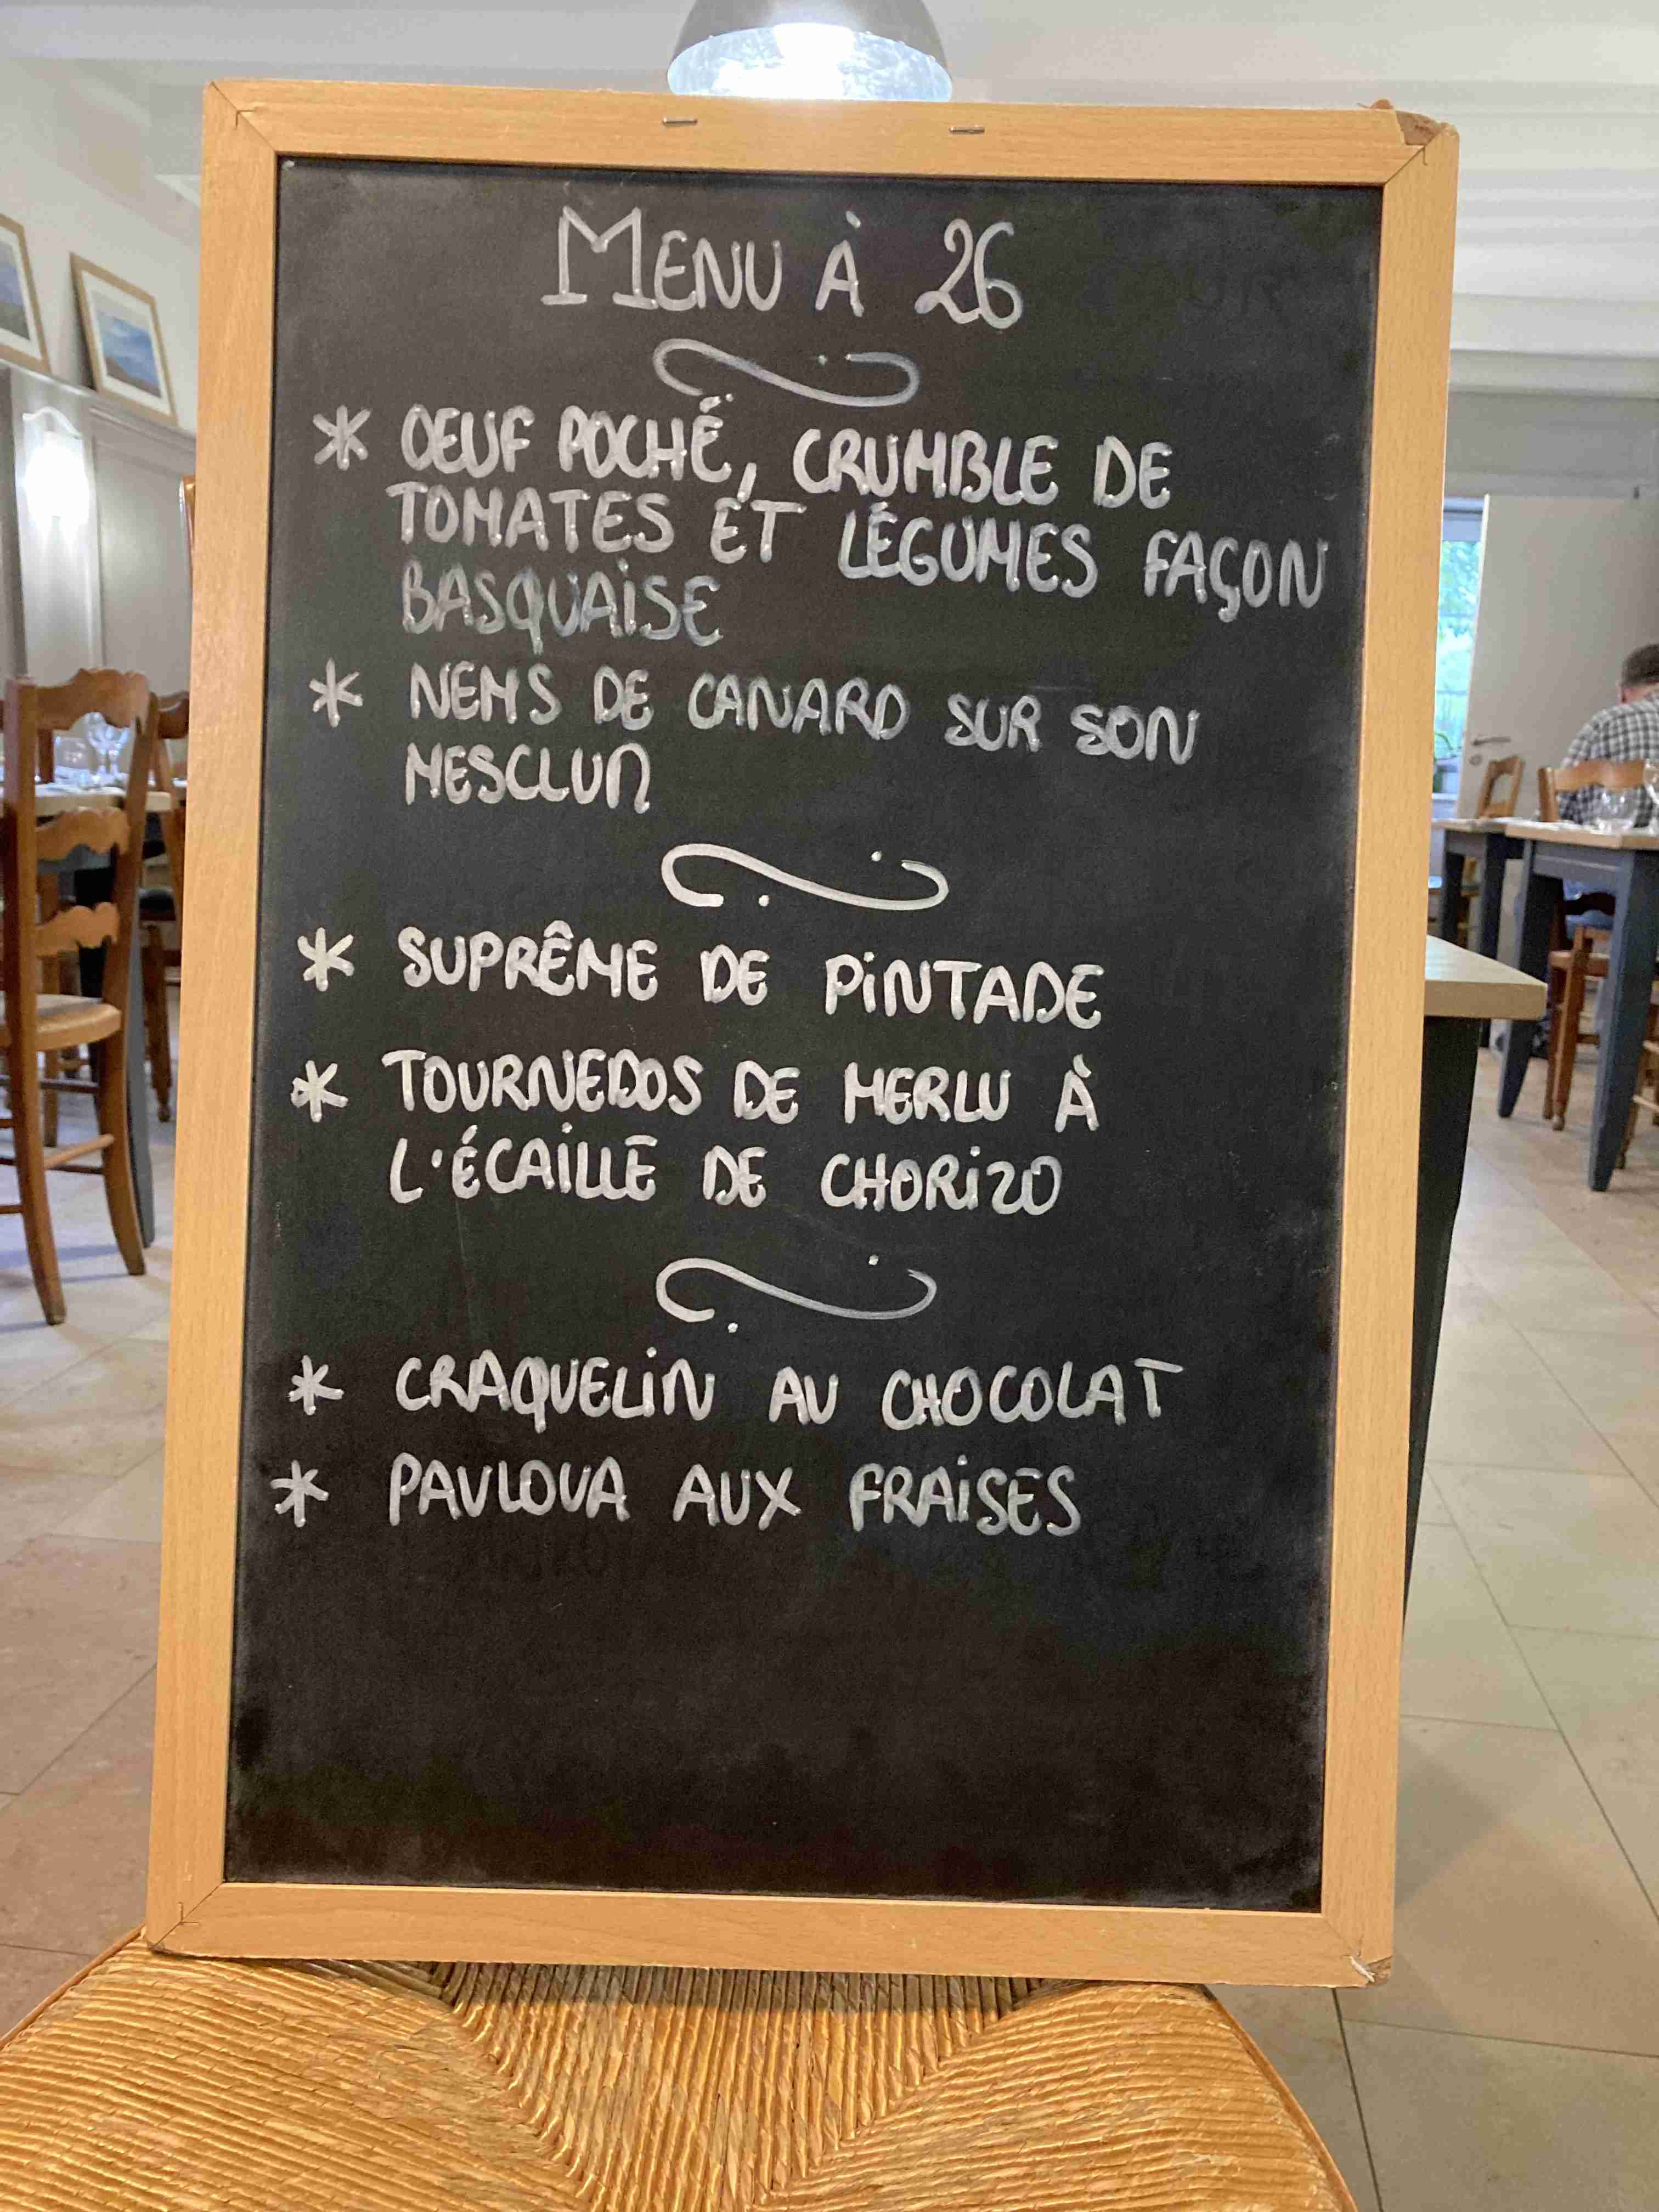 MENU À 26
* OEUF POCHÉ, CRUMBLE DE
TOMATES ET LÉGUMES FAÇON
BASQUAISE
* NEMS DE CANARD SUR SON
MESCLUN
* SUPRÊME DE PINTADE
* TOURNEDOS DE MERLU À
L'ÉCAILLE DE CHORIZO
* CRAQUELIN AU CHOCOLAT
* PAVLOVA AUX FRAISES